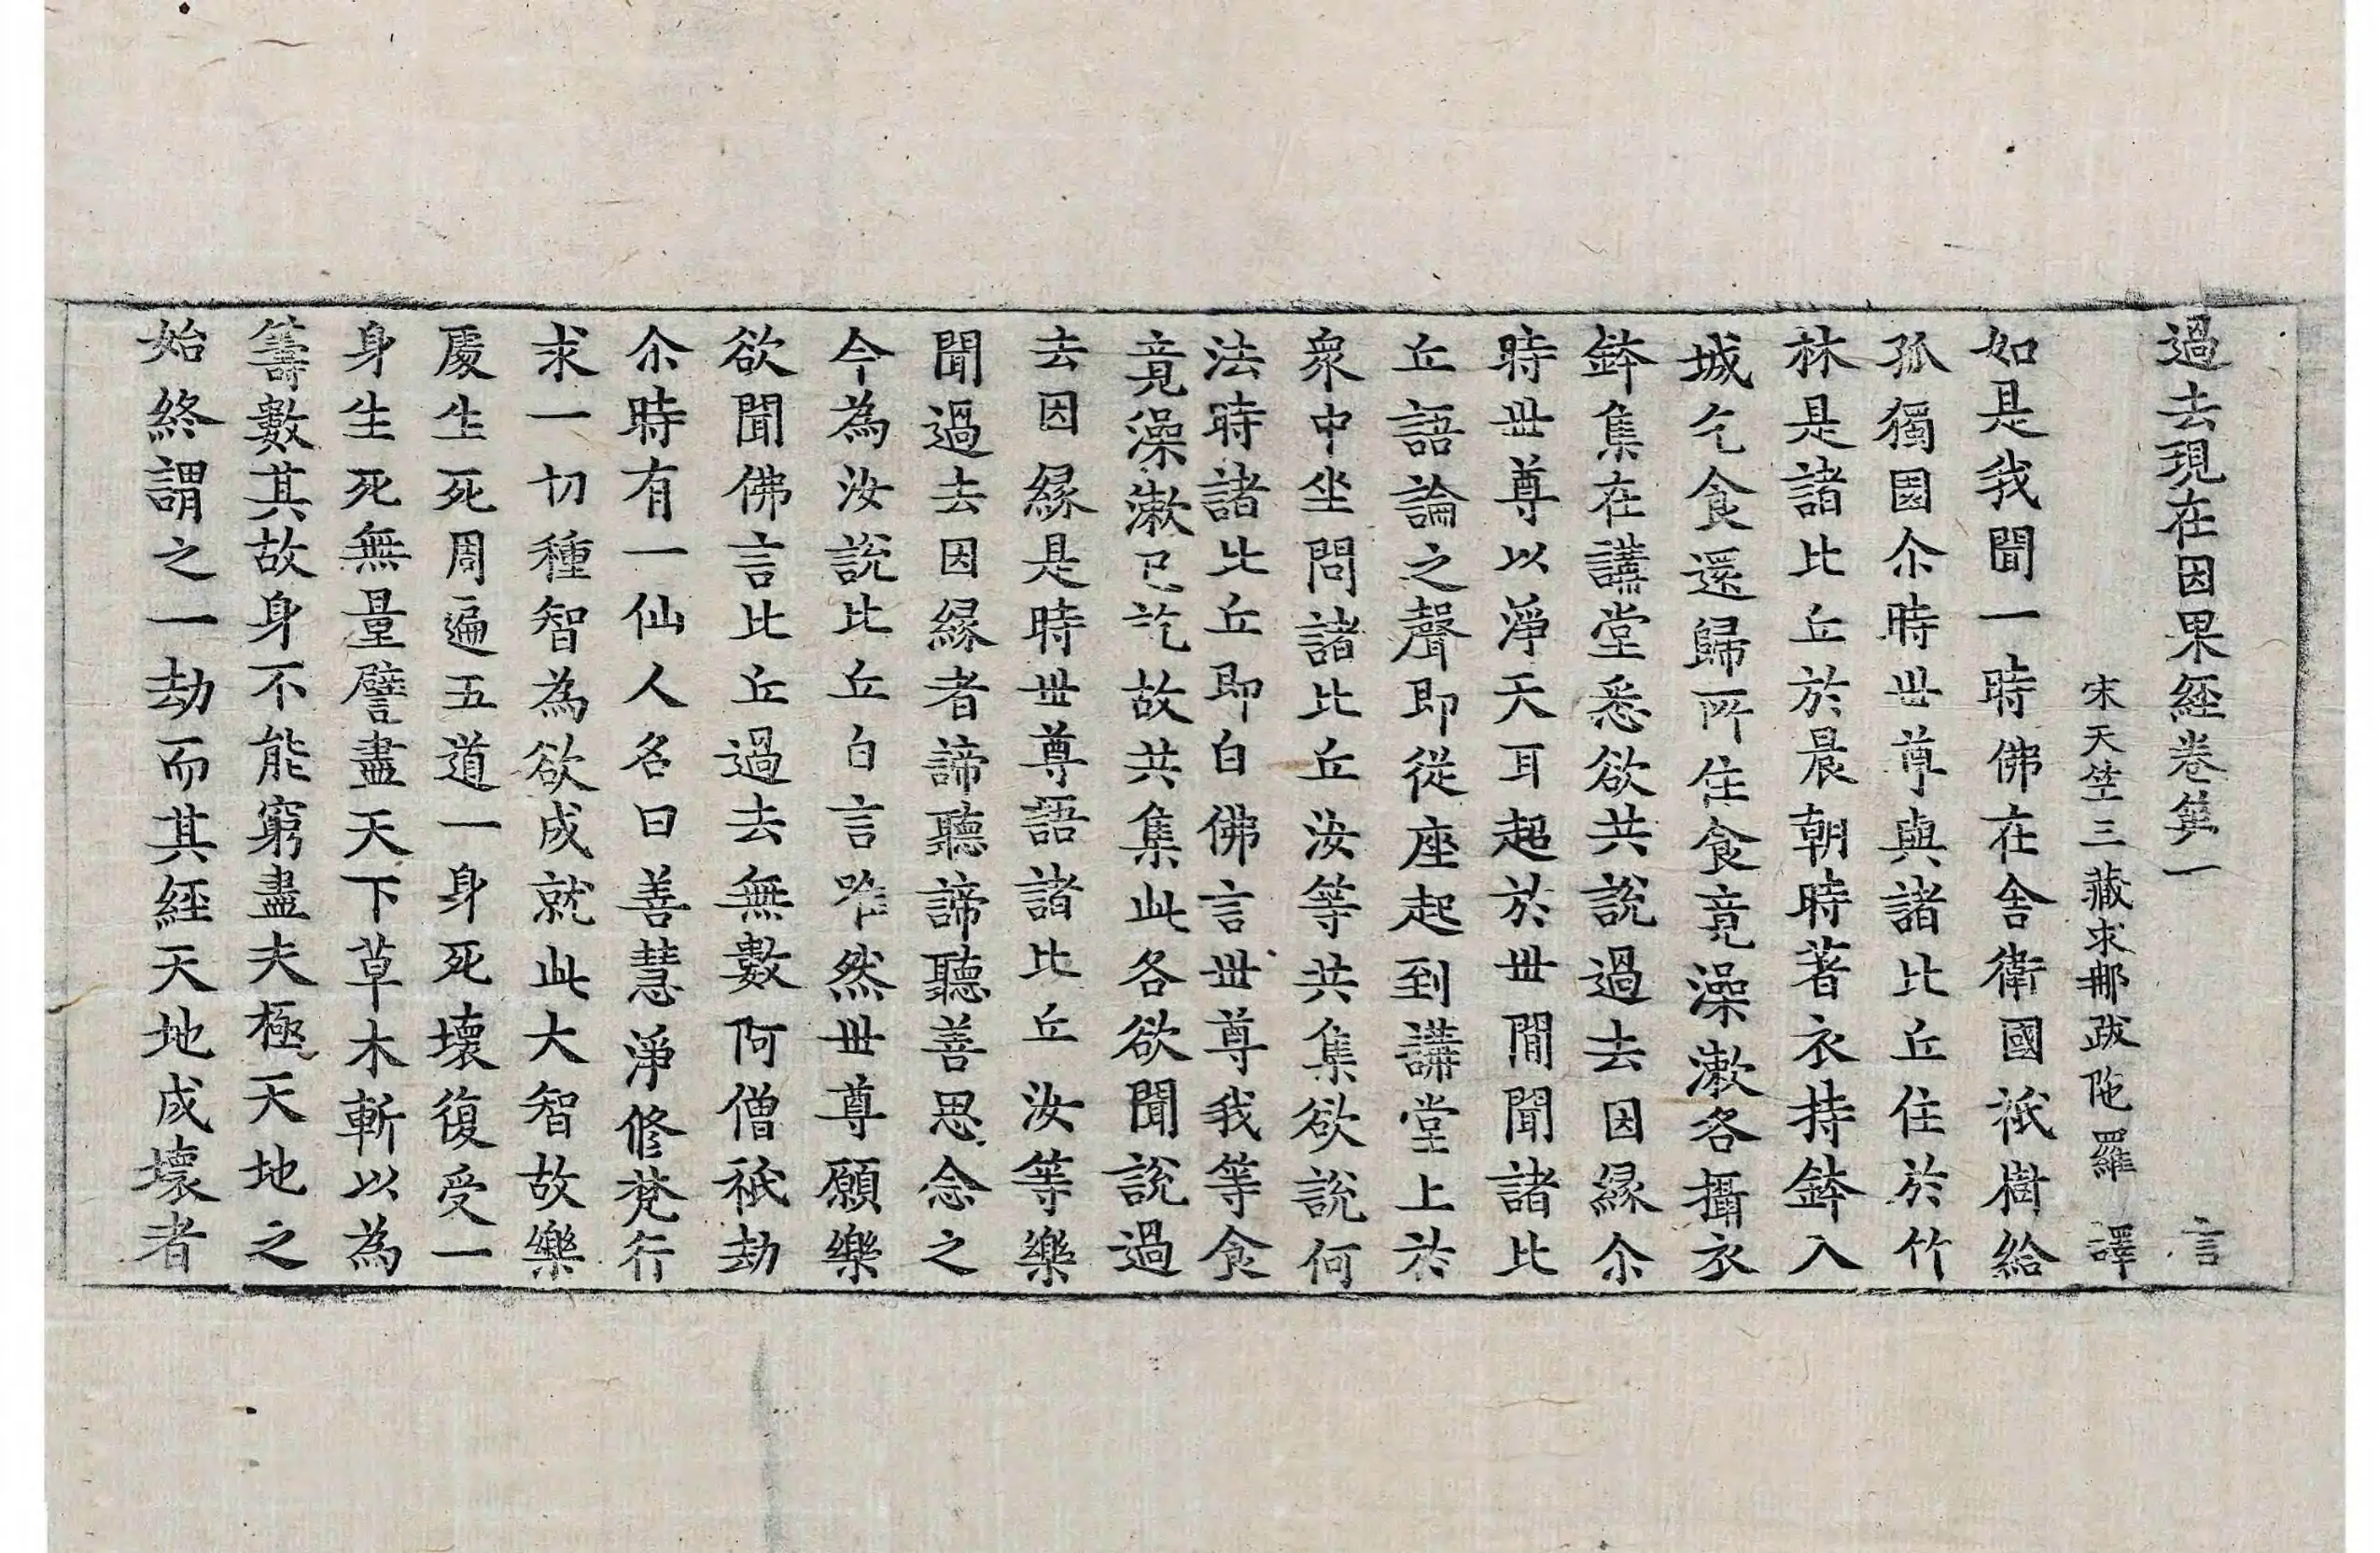 過去現在因果経卷第一 言
宋天竺三藏求那跋陁羅 譯
如是我聞一時佛在舍衛國祇樹給
孤獨園尒時世尊與諸比丘住於竹
林是諸比丘於晨朝時著衣持鉢入
城乞食還歸所住食竟澡漱各攝衣
鉢集在講堂悉欲共說過去因緣尒
時世尊以淨天耳超於世間聞諸比
丘語論之聲即從座起到講堂上於
衆中坐問諸比丘汝等共集欲說何
法時諸比丘即白佛言世尊我等食
竟澡漱已訖故共集此各欲聞說過
去因緣是時世尊語諸比丘汝等樂
聞過去因緣者諦聽諦聽善思念之
今為汝說比丘白言唯然世尊願樂
欲聞佛言比丘過去無數阿僧祇劫
尒時有一仙人名曰善慧淨修梵行
求一切種智為欲成就此大智故樂
處生死周遍五道一身死壞復受一
身生死無量譬盡天下草木斬以為
籌數其故身不能窮盡夫極天地之
始終謂之一劫而其経天地成壞者